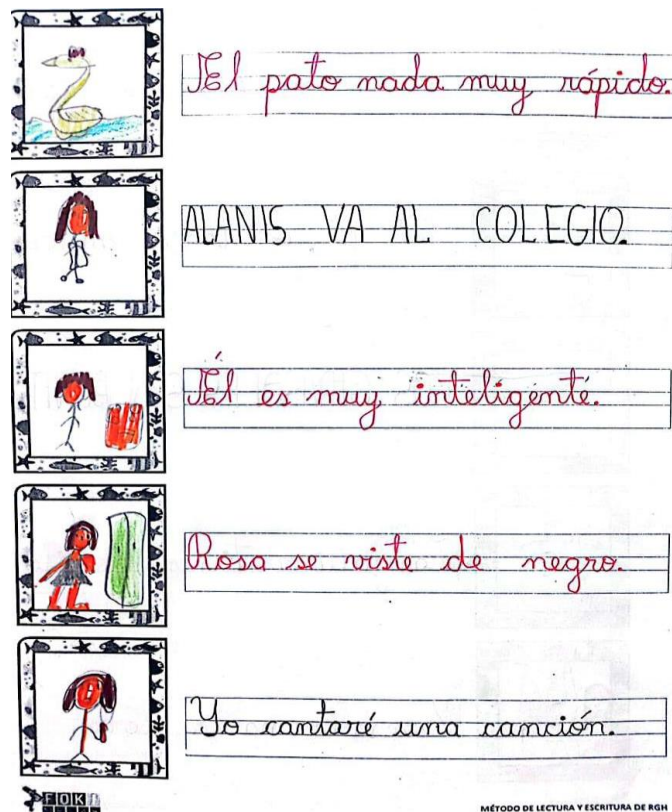 El pato nada muy rápido.
ALANIS VA AL COLEGIO.
Él es muy inteligente.
Rosa se viste de negro.
Yo cantaré una canción.
FOKI
MÉTODO DE LECTURA Y ESCRITURA DE RGH